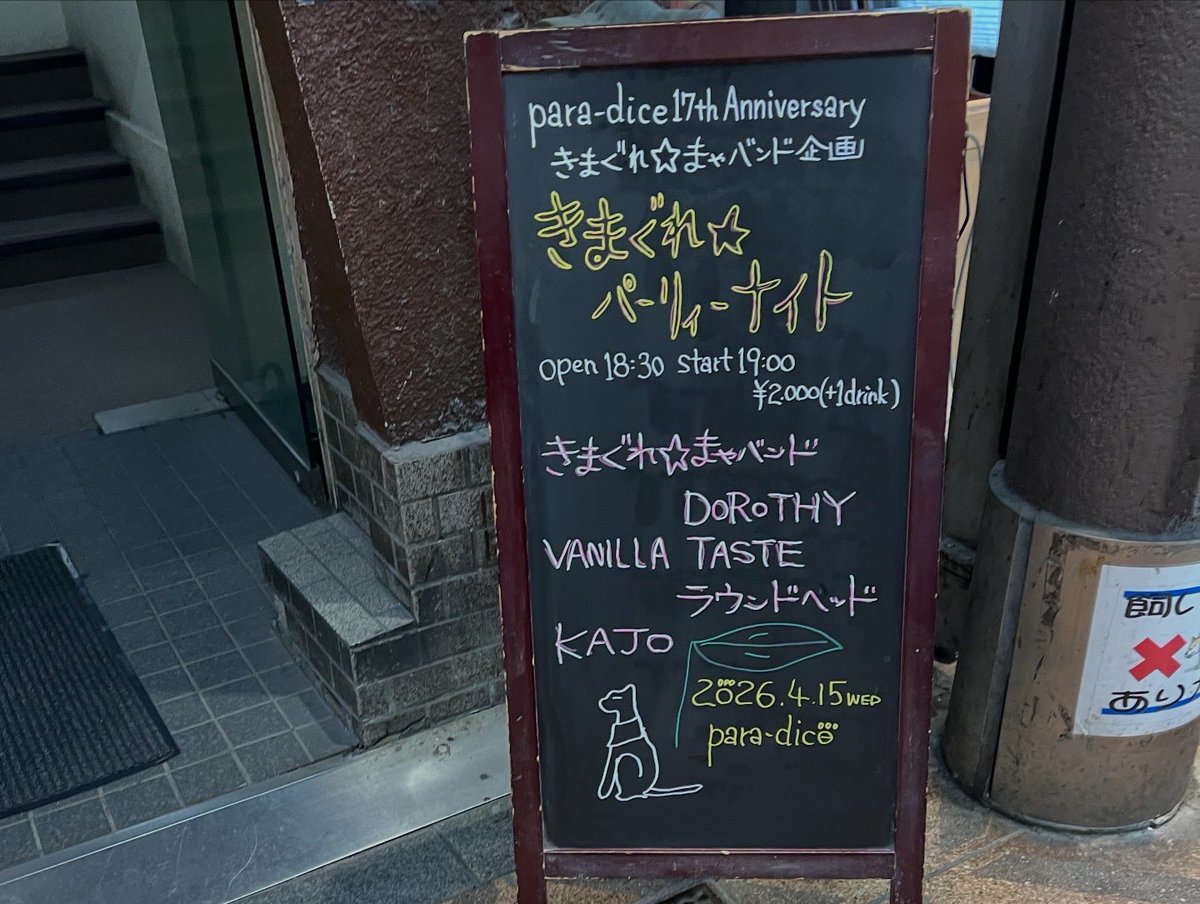 para-dice 17th Anniversary
きまぐれ☆まゃバンド企画
きまぐれ☆
パーリィーナイト
open 18:30 start 19:00
¥2.000(+1drink)
きまぐれ☆まゃバンド
DOROTHY
VANILLA TASTE
ラウンドヘッド
KAJO
2026.4.15 WED
para-dice
飼し
あり